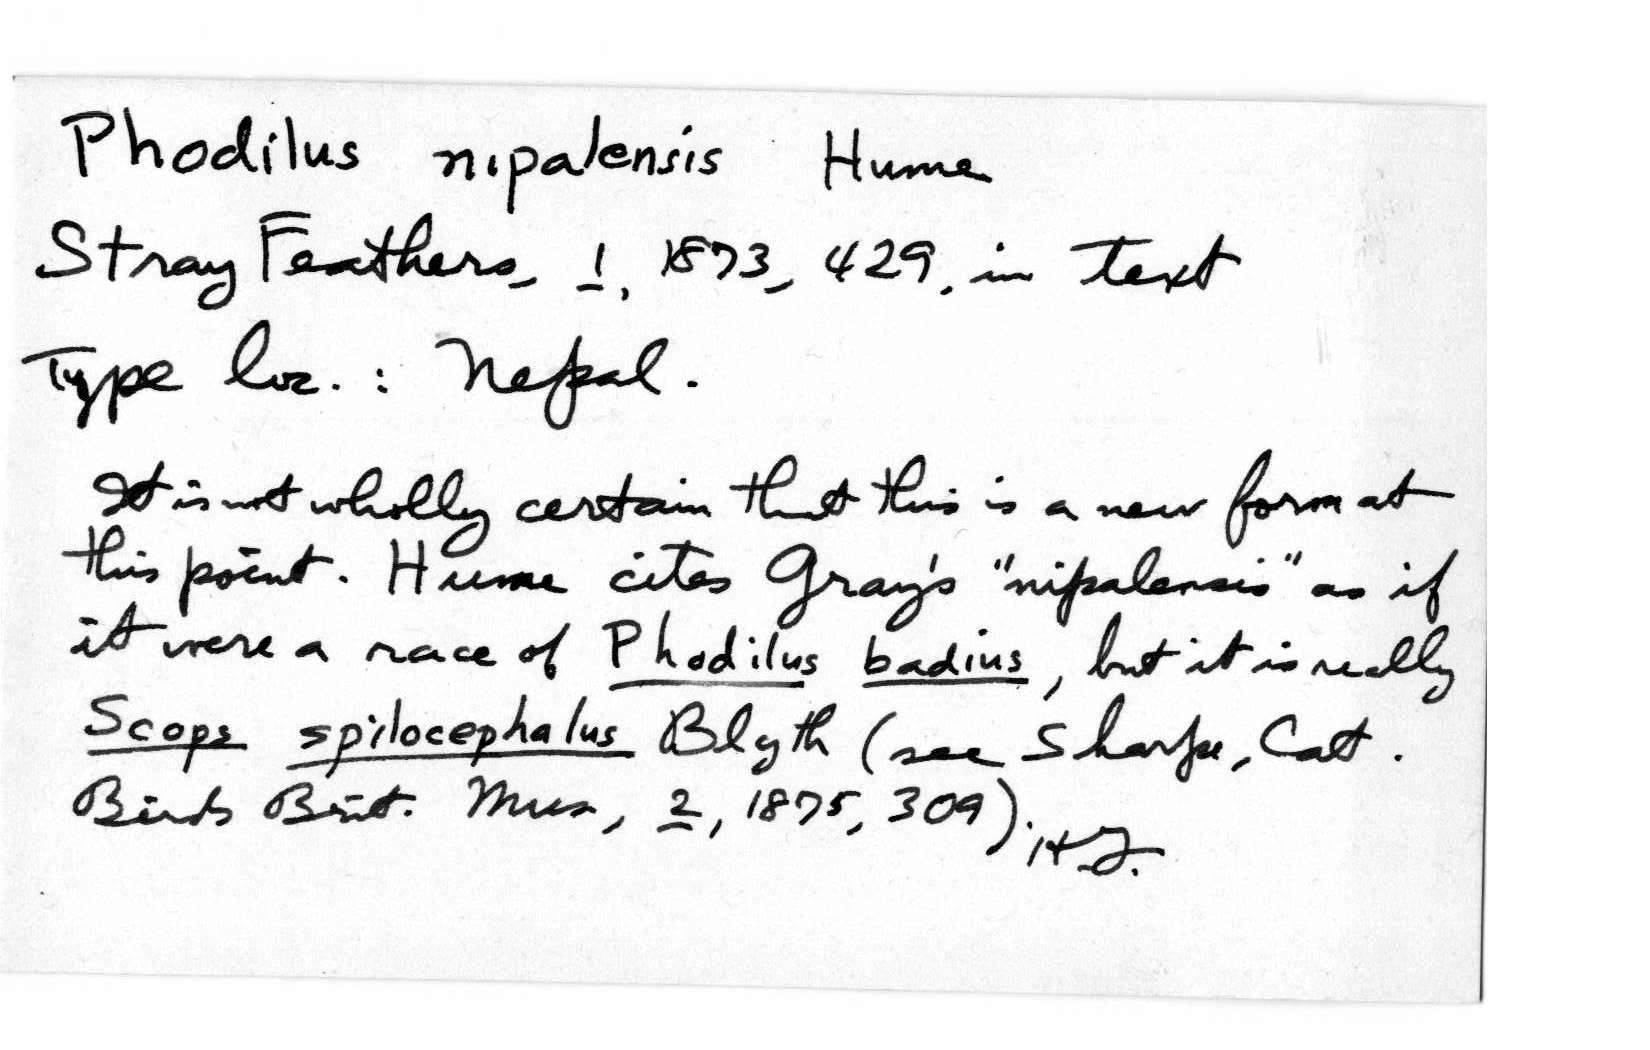 Phodilus nipalensis Hume
Stray Feathers, 1, 1873, 429, in text
Type loc. : Nepal.
It is not wholly certain that this is a new form at
this point. Hume cites Gray's "nipalensis" as if
it were a race of Phodilus badius, but it is really
Scops spilocephalus Blyth (see Sharpe, Cat.
Birds Brit. Mus., 2, 1875, 309).